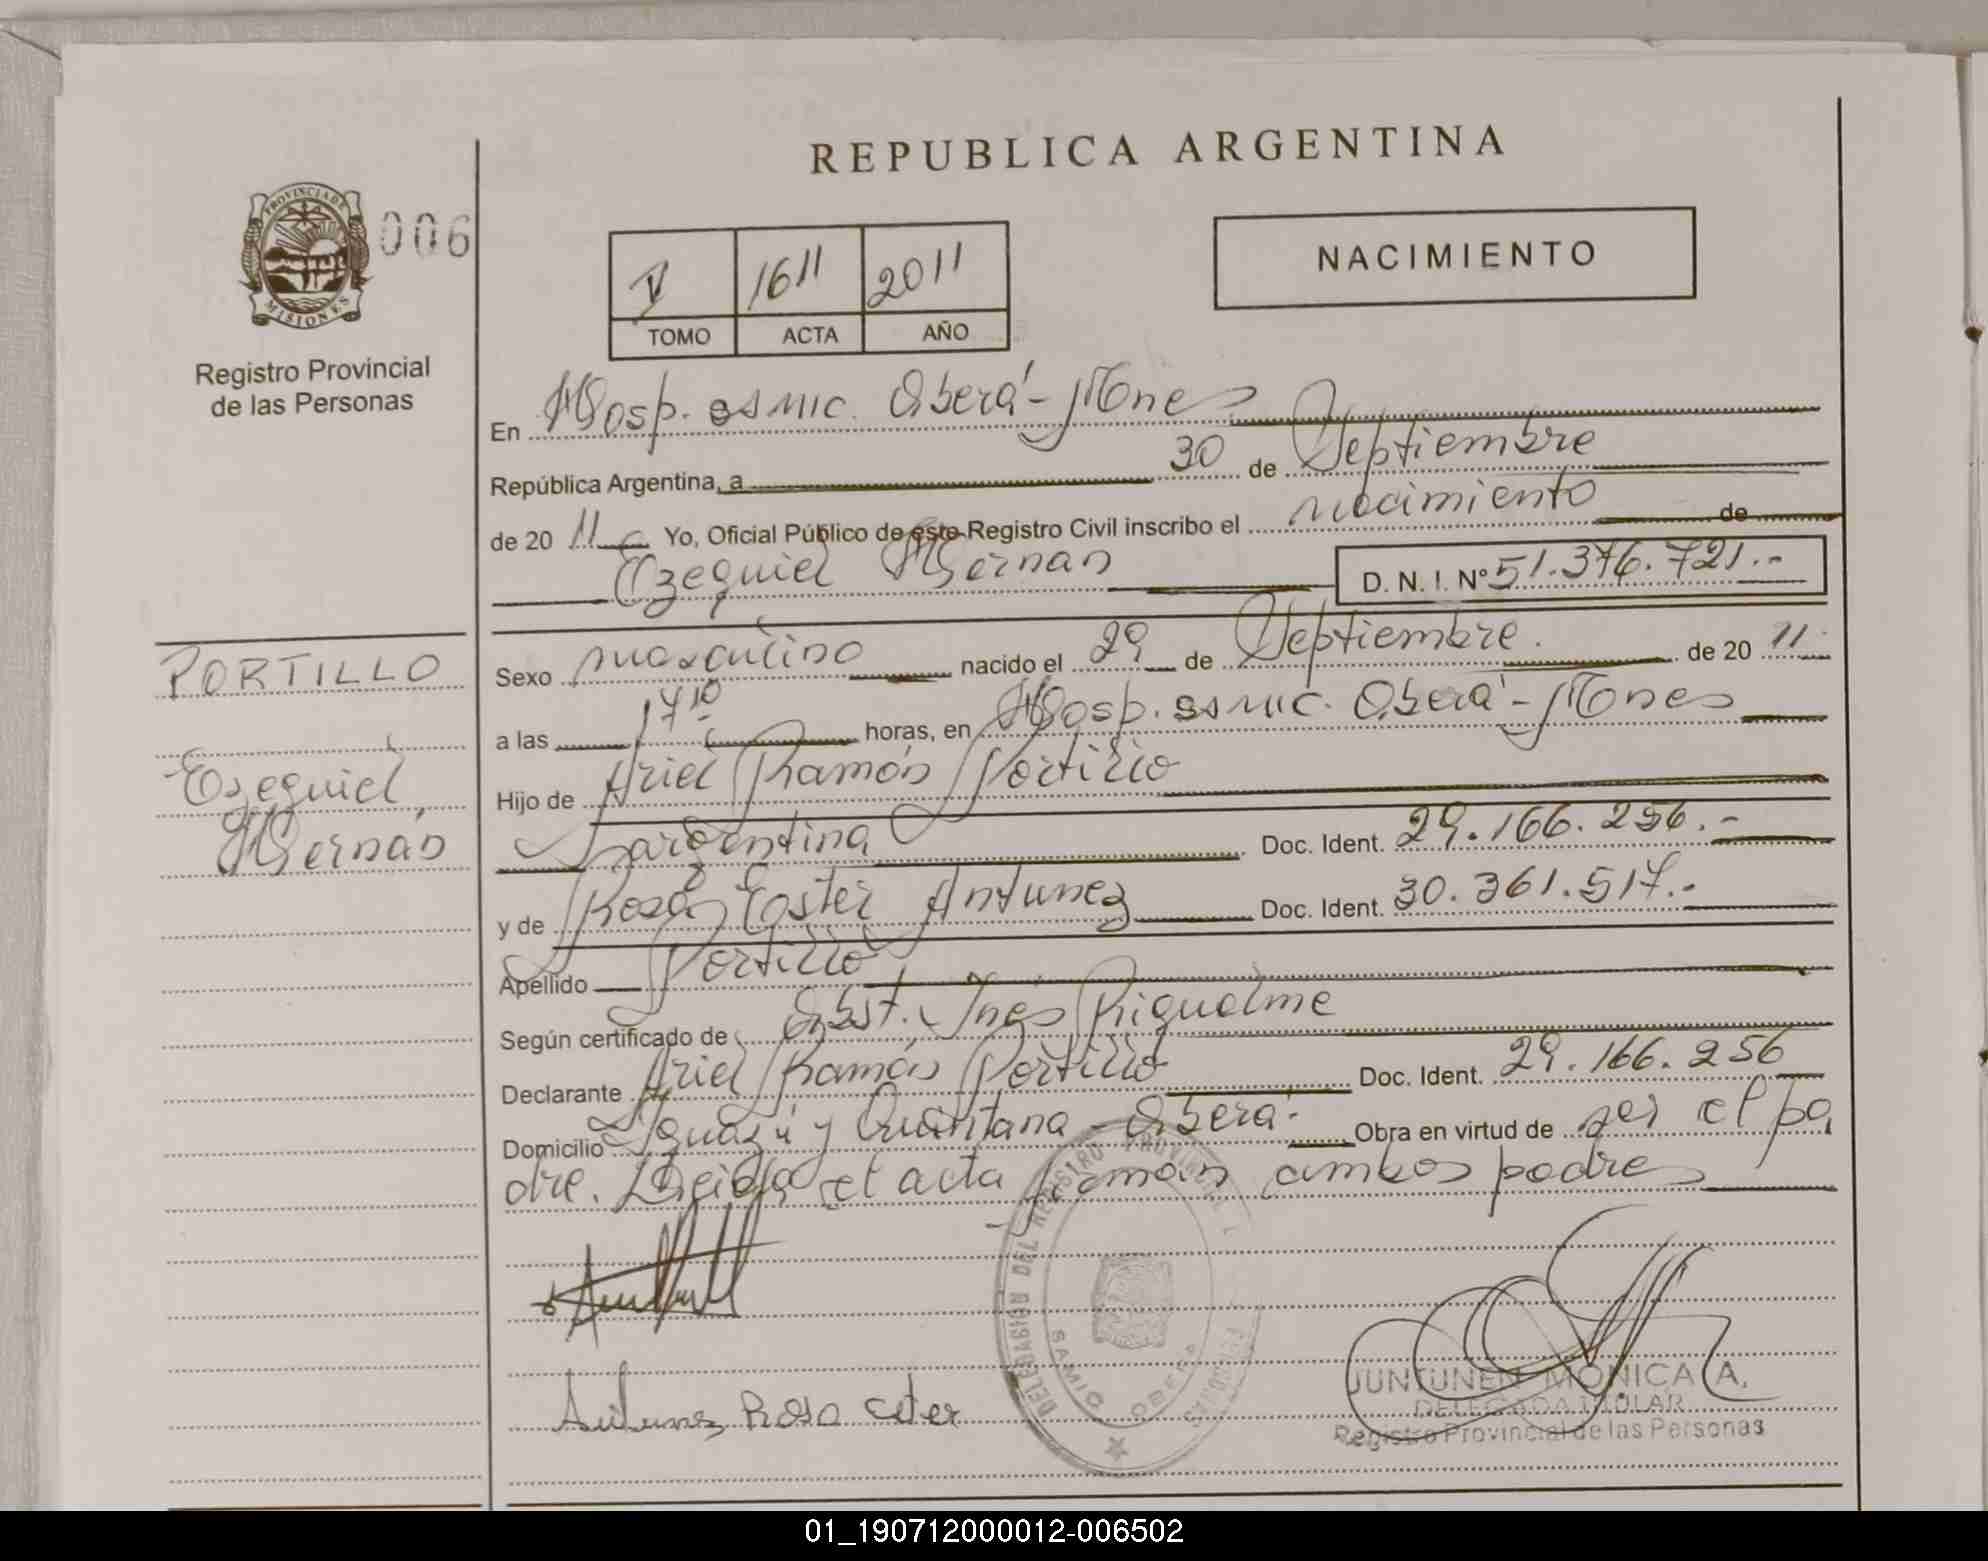 REPUBLICA ARGENTINA
PROVINCIA DE
MISIONES
006
Registro Provincial
de las Personas
V 1611 2011
TOMO ACTA AÑO
NACIMIENTO
En Hosp. SAMIC. Oberá - Mnes
República Argentina, a 30 de Septiembre
de 20 11 Yo, Oficial Público de este Registro Civil inscribo el nacimiento de
Ezequiel Hernan D. N. I. Nº 51.376.721.-
PORTILLO
Ezequiel
Hernán
Sexo masculino nacido el 29 de Septiembre. de 20 11.
a las 17 10 horas, en Hosp. SAMIC. Oberá - Mnes
Hijo de Ariel Ramón Portillo
argentina Doc. Ident. 29.166.256.-
y de Rosa Ester Antunez Doc. Ident. 30.361.517.-
Apellido Portillo
Según certificado de Obst. Inés Riquelme
Declarante Ariel Ramón Portillo Doc. Ident. 29.166.256
Domicilio Iguazú y Quintana - Oberá. Obra en virtud de ser el pa
dre. Leida el acta firman ambos padres
DELEGACION DEL REGISTRO PROVINCIAL
SAMIC OBERA
Antunez Rosa ester
JUNTUNEN MONICA A.
DELEGADA TITULAR
Registro Provincial de las Personas
01_190712000012-006502